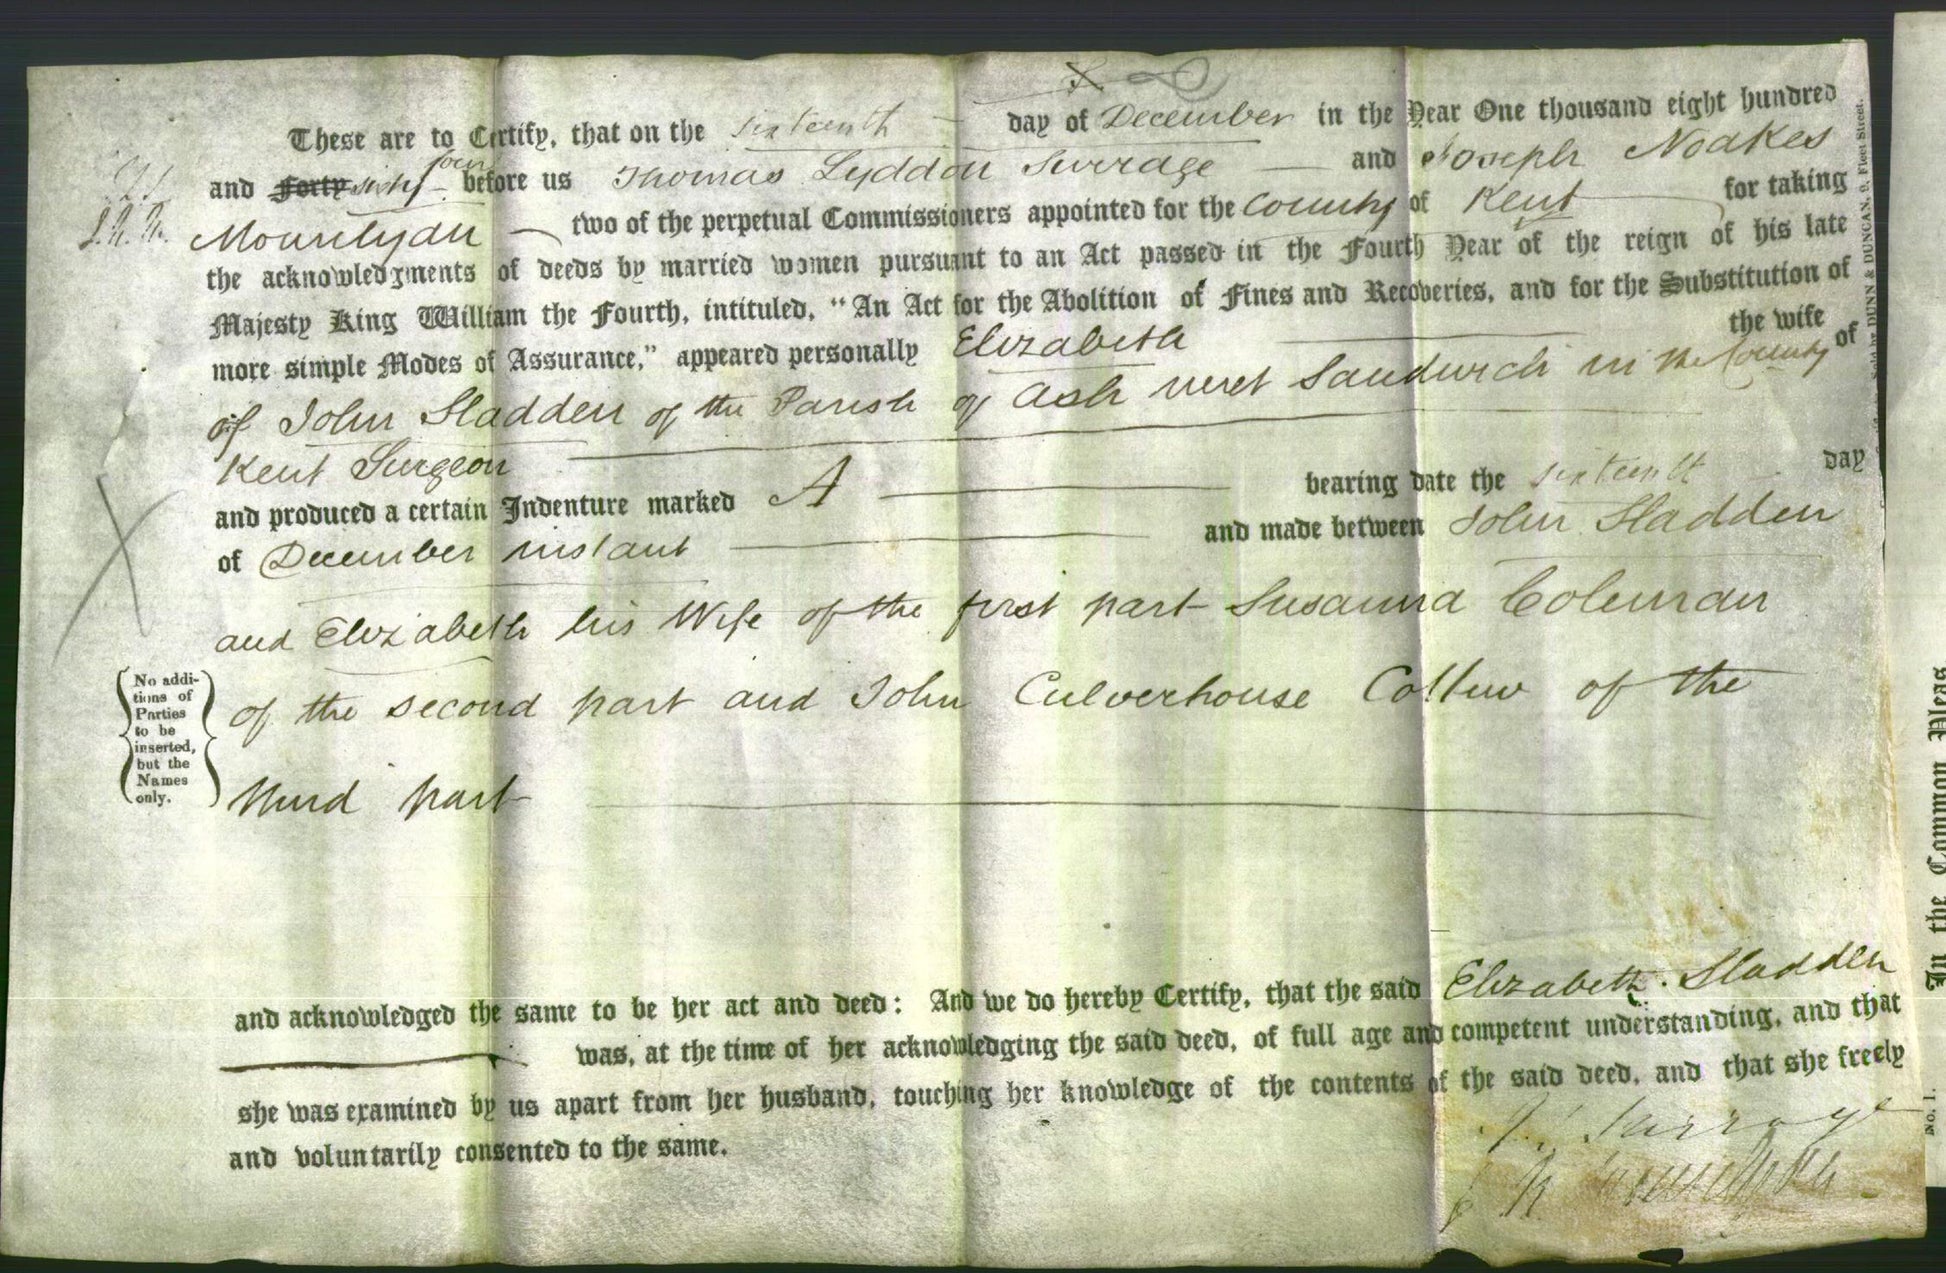 These are to Certify, that on the sixteenth day of December in the Year One thousand eight hundred
and Forty sixty four before us Thomas Lyddon Surrage and Joseph Noakes
J. N. M. Mourilyan two of the perpetual Commissioners appointed for the County of Kent for taking
the acknowledgments of deeds by married women pursuant to an Act passed in the Fourth Year of the reign of his late
Majesty King William the Fourth, intituled, "An Act for the Abolition of Fines and Recoveries, and for the Substitution of
more simple Modes of Assurance," appeared personally Elizabeth the wife
of John Sladden of the Parish of Ash next Sandwich in the County of
Kent Surgeon
and produced a certain Indenture marked A bearing date the sixteenth day
of December instant and made between John Sladden
and Elizabeth his Wife of the first part Susanna Coleman
of the second part and John Culverhouse of the
third part
No addi-
tions of
Parties
to be
inserted,
but the
Names
only.
and acknowledged the same to be her act and deed: And we do hereby Certify, that the said Elizabeth Sladden
was, at the time of her acknowledging the said deed, of full age and competent understanding, and that
she was examined by us apart from her husband, touching her knowledge of the contents of the said deed, and that she freely
and voluntarily consented to the same.
Surrage
DUNN & DUNCAN, 9, Fleet Street.
In the Common Pleas
No. 1.